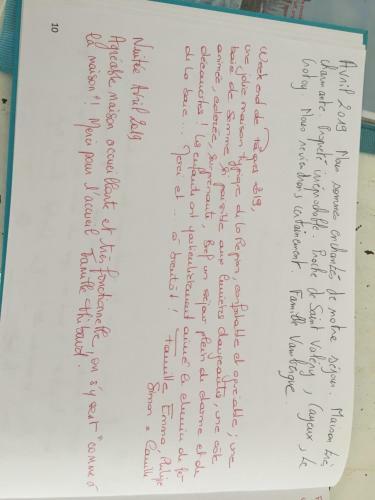 Avril 2019 Nous sommes enchantés de notre séjour. Maison très
charmante, Propreté irréprochable. Proche de Saint Valéry, Cayeux, Le
Crotoy. Nous reviendrons certainement. Famille
Week end de Pâques 2019,
une jolie maison typique de la Région, confortable et agréable ; une
baie de Somme, si paisible aux lumières changeantes, une côte
animée, colorée, surprenante, Bref un séjour plein de charme et de
découvertes. Les enfants ont particulièrement aimé le chemin de fer
de la baie... Merci et ... à bientôt !
Famille Emma, Philippe
Simon & Camille
Nuitée Avril 2019
Agréable maison accueillante et très fonctionnelle, on s'y sent "comme à
la maison" ! Merci pour l'accueil Famille
10